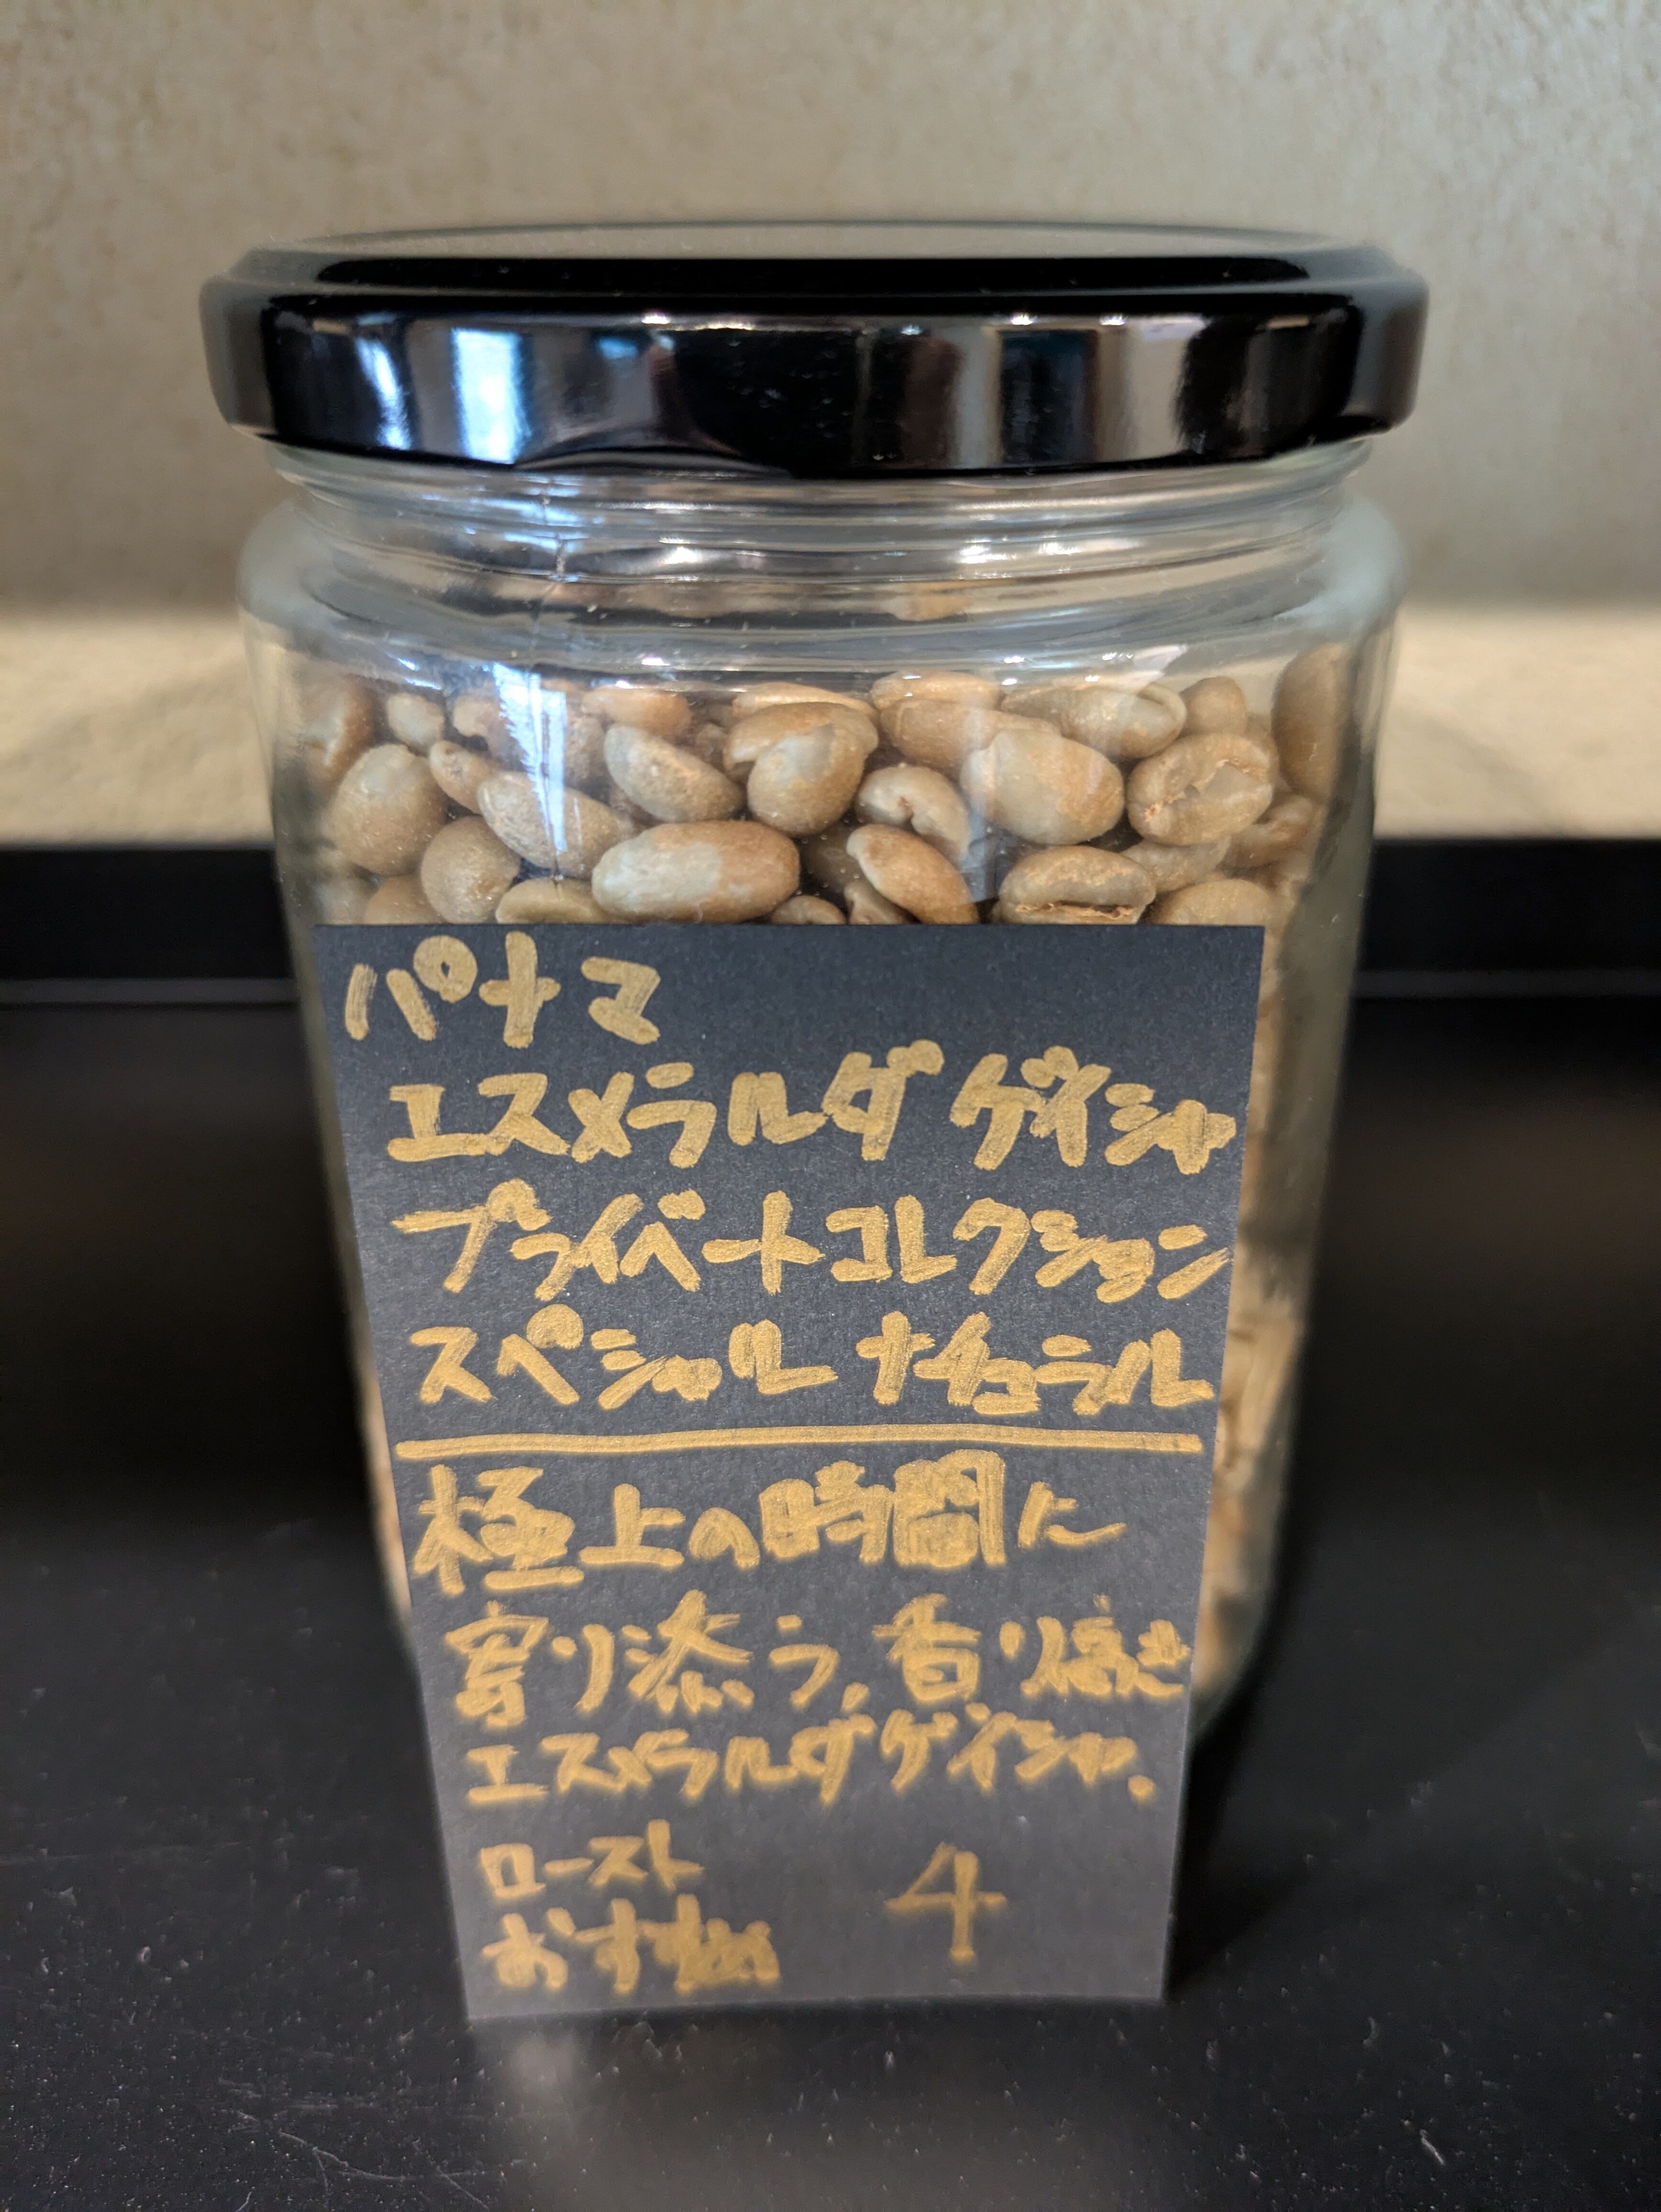 パナマ
エスメラルダ ゲイシャ
プライベートコレクション
スペシャル ナチュラル
極上の時間に
寄り添う、香り高き
エスメラルダゲイシャ。
ロースト
おすすめ 4